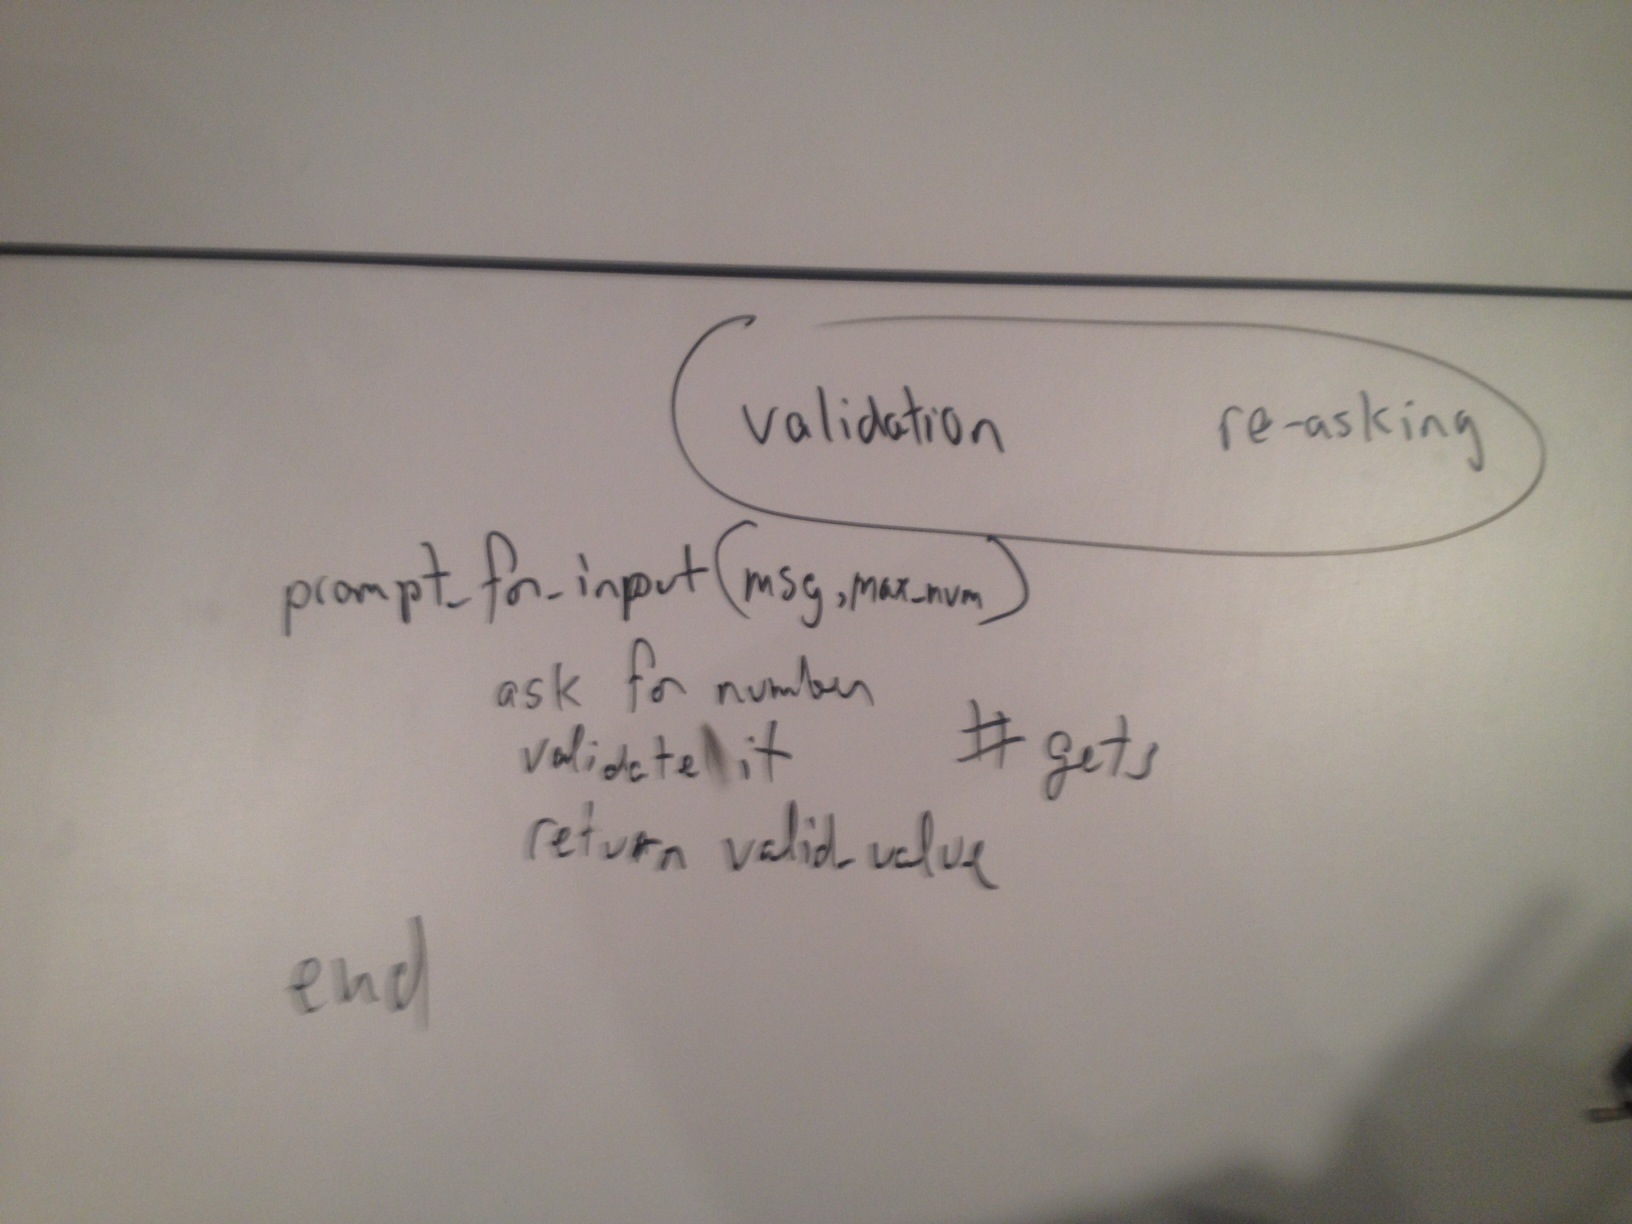 validation re-asking
prompt_for_input(msg, max_num)
ask for number
validate it # gets
return valid_value
end